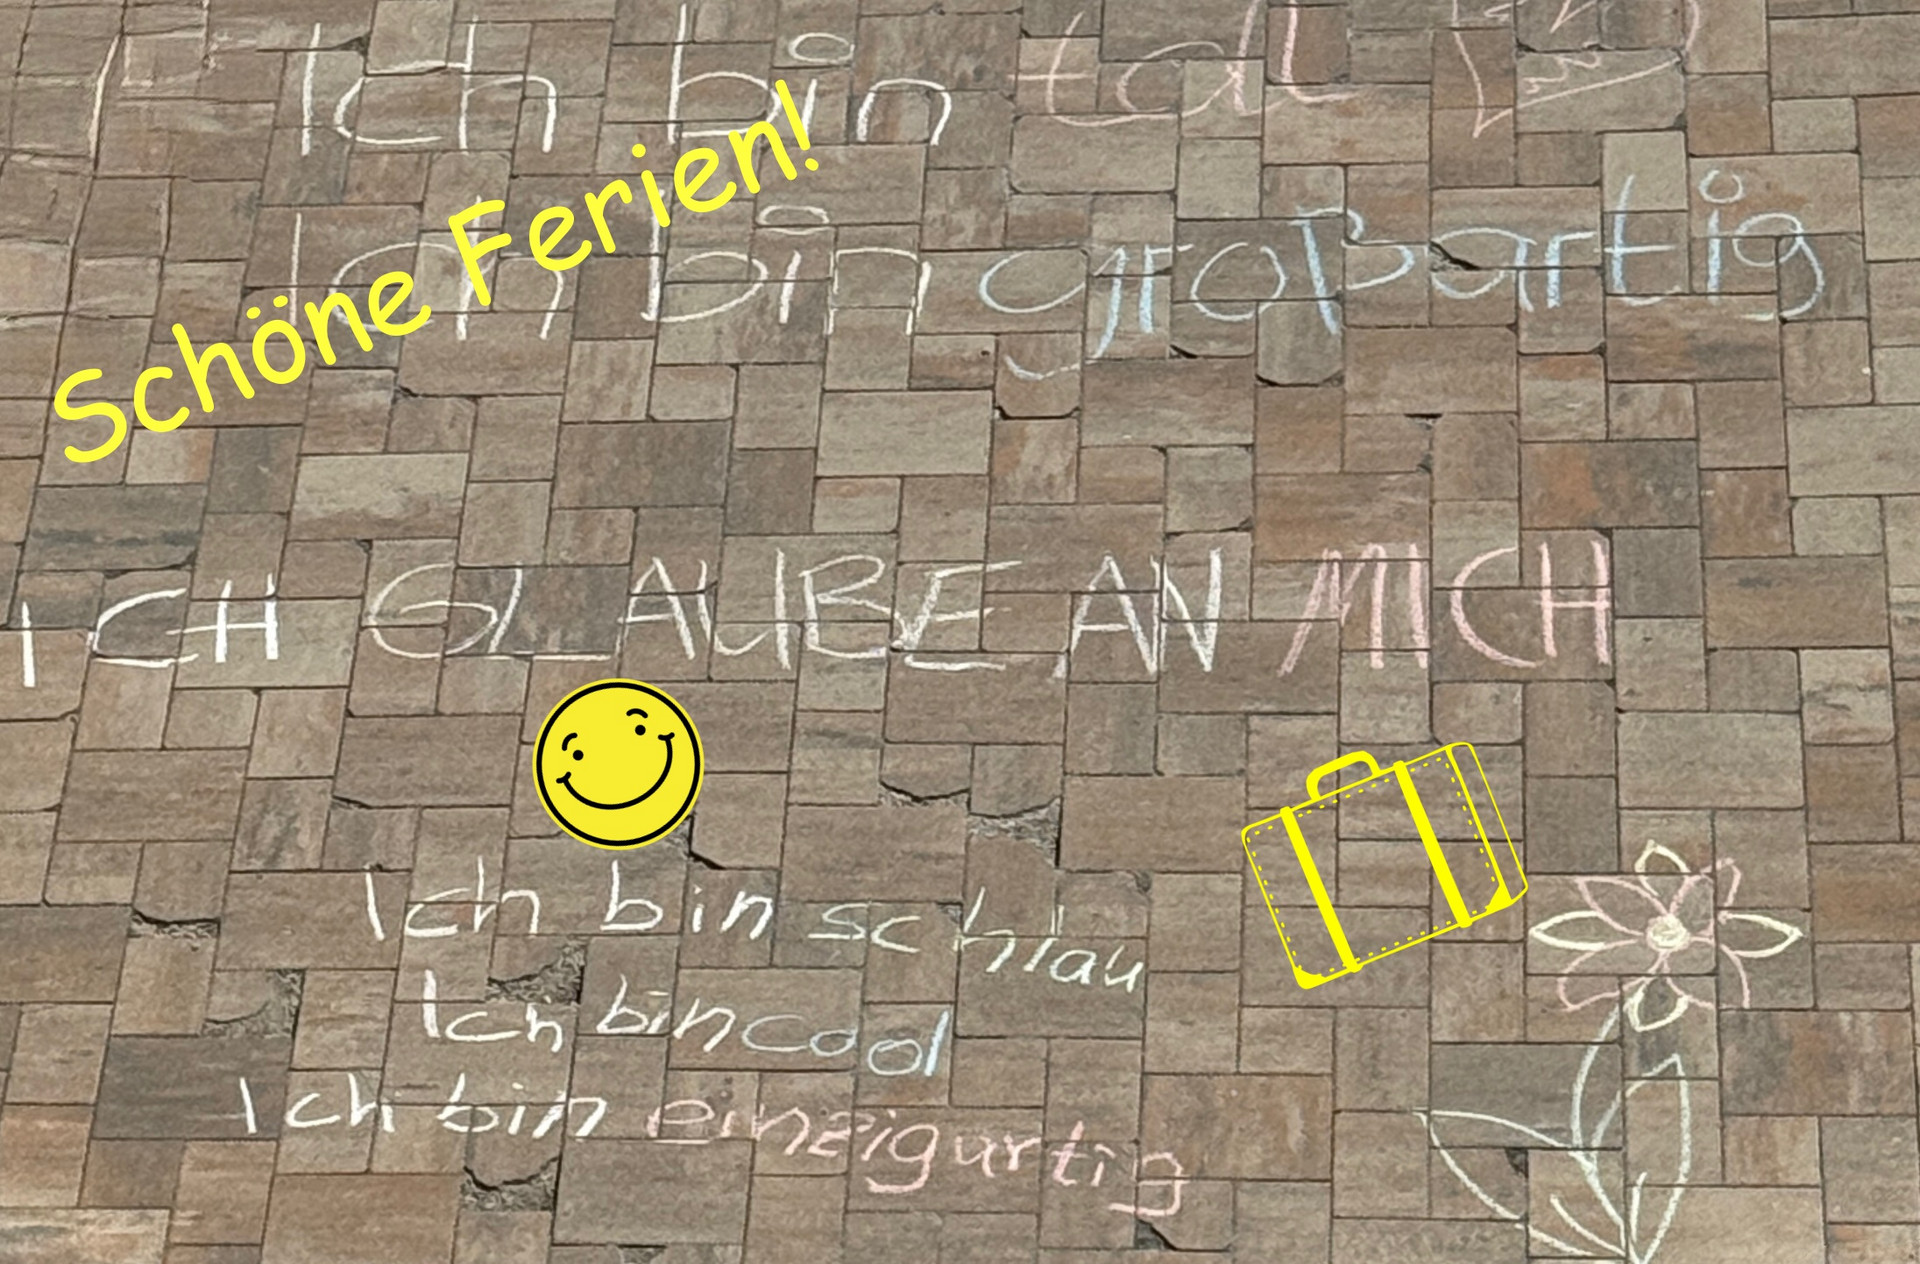 Ich bin tal
Ich bin großartig
Schöne Ferien!
ICH GLAUBE AN MICH
Ich bin schlau
Ich bin cool
Ich bin einzigartig